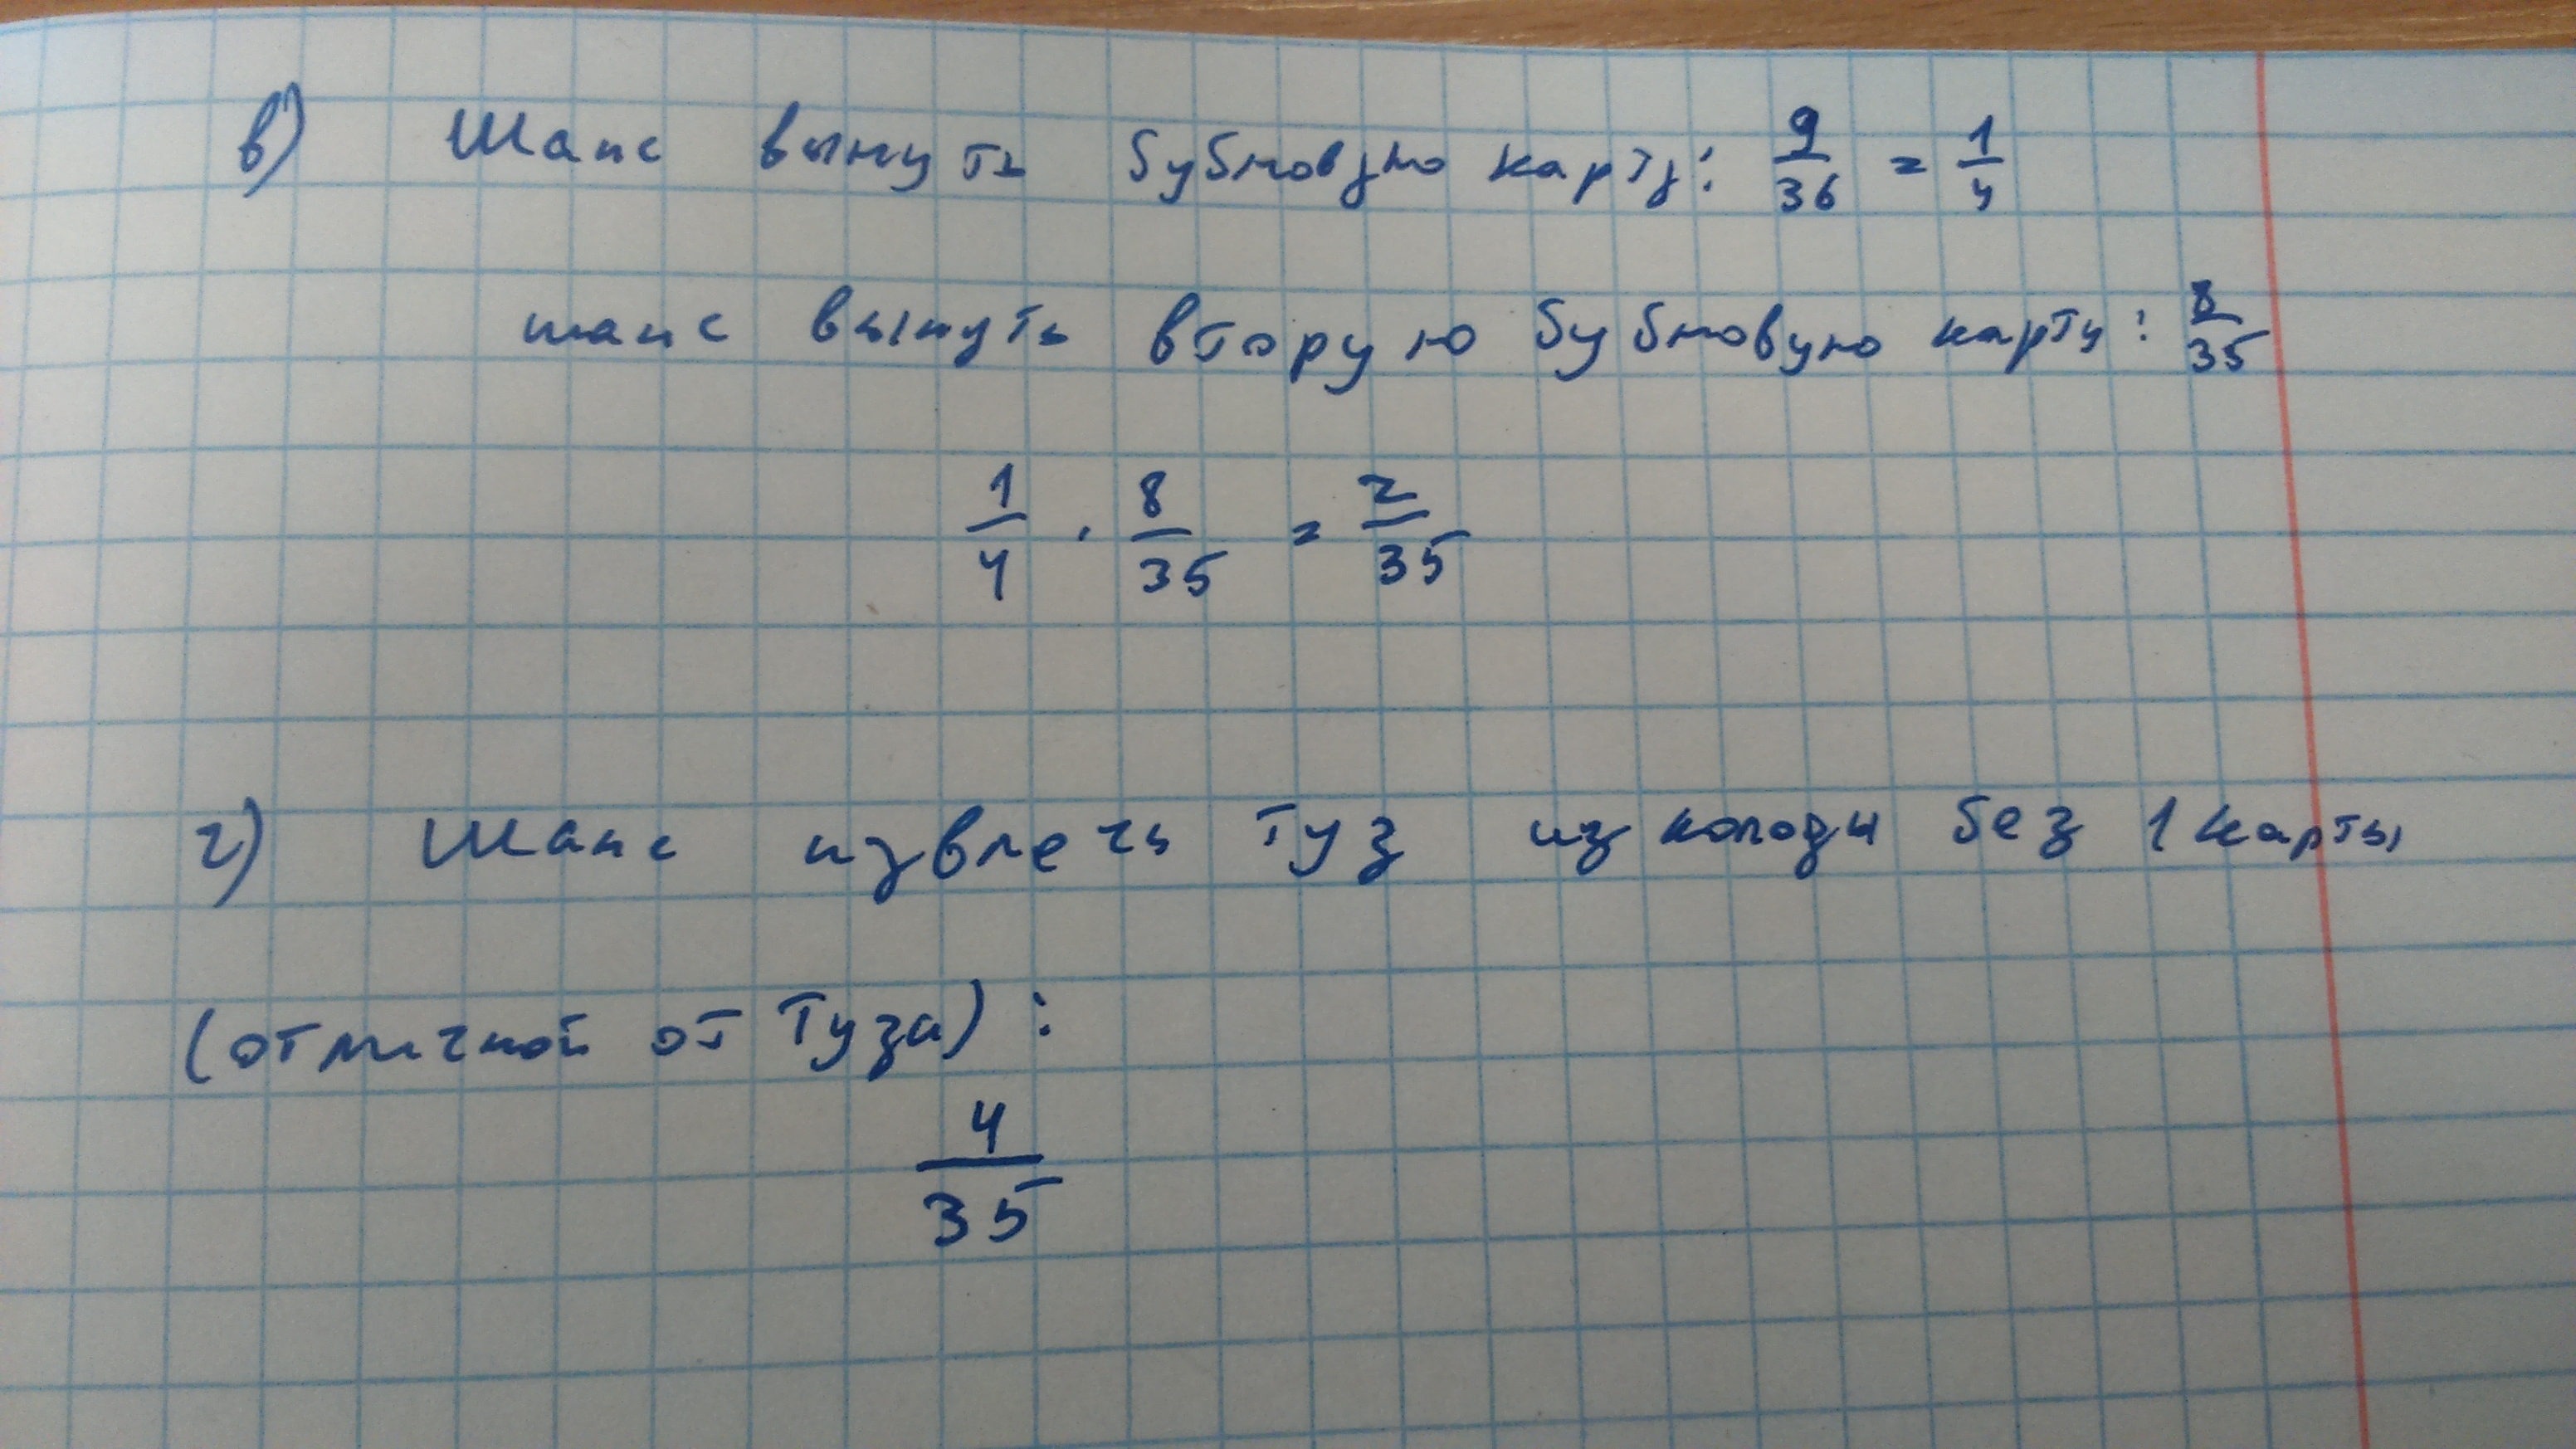 в) Шанс вынуть бубновую карту: 9/36 = 1/4
шанс вынуть вторую бубновую карту: 8/35
1/4 · 8/35 = 2/35
г) Шанс извлечь туз из колоды без 1 карты
(отличной от туза):
4/35